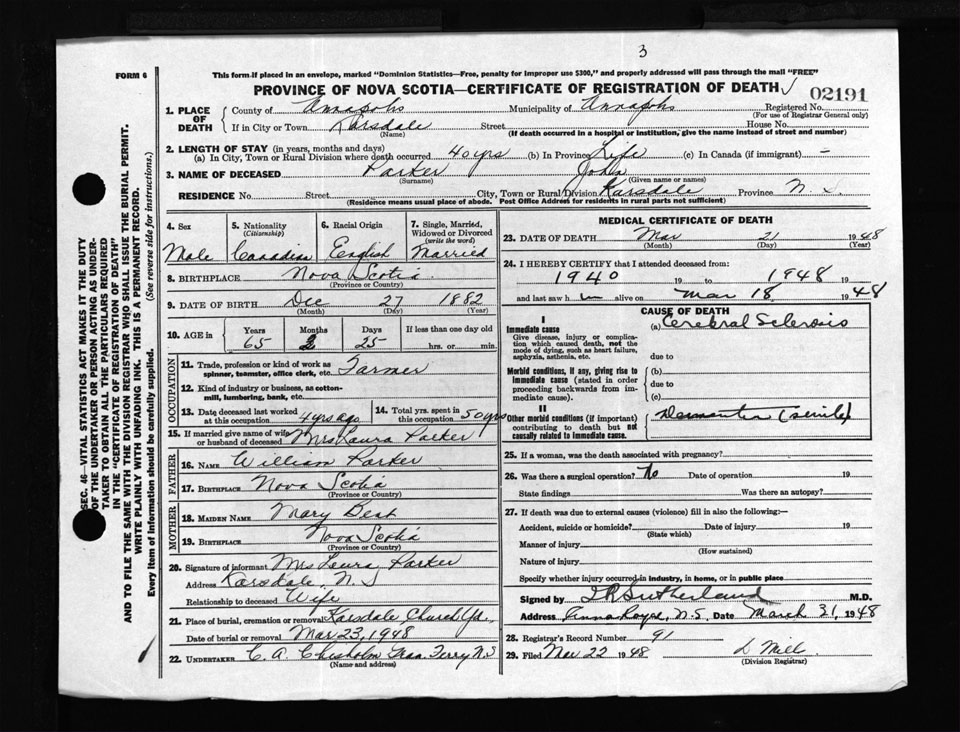 3
FORM 6
This form if placed in an envelope, marked "Dominion Statistics—Free, penalty for improper use $300," and properly addressed will pass through the mail "FREE"
PROVINCE OF NOVA SCOTIA—CERTIFICATE OF REGISTRATION OF DEATH
02191
1. PLACE OF DEATH County of Annapolis Municipality of Annapolis Registered No.
(For use of Registrar General only)
If in City or Town Karsdale Street House No.
(Name) (If death occurred in a hospital or institution, give the name instead of street and number)
2. LENGTH OF STAY (in years, months and days)
(a) In City, Town or Rural Division where death occurred 40 yrs (b) In Province Life (c) In Canada (if immigrant) –
3. NAME OF DECEASED Parker John
(Surname) (Given name or names)
RESIDENCE No. Street City, Town or Rural Division Karsdale Province N. S.
(Residence means usual place of abode. Post Office Address for residents in rural parts not sufficient)
4. Sex 5. Nationality (Citizenship) 6. Racial Origin 7. Single, Married, Widowed or Divorced (write the word)
Male Canadian English Married
8. BIRTHPLACE Nova Scotia
(Province or Country)
9. DATE OF BIRTH Dec 27 1882
(Month) (Day) (Year)
10. AGE in Years Months Days If less than one day old
65 2 25 hrs. or min.
OCCUPATION
11. Trade, profession or kind of work as spinner, teamster, office clerk, etc. Farmer
12. Kind of industry or business, as cotton-mill, lumbering, bank, etc.
13. Date deceased last worked at this occupation 4 yrs ago 14. Total yrs. spent in this occupation 50 yrs
15. If married give name of wife or husband of deceased Mrs Laura Parker
FATHER
16. NAME William Parker
17. BIRTHPLACE Nova Scotia
(Province or Country)
MOTHER
18. MAIDEN NAME Mary
19. BIRTHPLACE Nova Scotia
(Province or Country)
20. Signature of informant Mrs Laura Parker
Address Karsdale, N. S
Relationship to deceased Wife
21. Place of burial, cremation or removal Karsdale Church Yd.
Date of burial or removal Mar 23, 1948
22. UNDERTAKER C. A. Chisholm Gran. Ferry N.S
(Name and address)
MEDICAL CERTIFICATE OF DEATH
23. DATE OF DEATH Mar 21 1948
(Month) (Day) (Year)
24. I HEREBY CERTIFY that I attended deceased from:
1940 19 to 1948 19
and last saw h im alive on Mar 18 1948
CAUSE OF DEATH
I
Immediate cause (a) Cerebral Sclerosis
Give disease, injury or complication which caused death, not the mode of dying, such as heart failure, asphyxia, asthenia, etc. due to
Morbid conditions, if any, giving rise to immediate cause (stated in order proceeding backwards from immediate cause). (b)
due to
(c)
II
Other morbid conditions (if important) contributing to death but not causally related to immediate cause. Dementia (senile)
25. If a woman, was the death associated with pregnancy?
26. Was there a surgical operation? No Date of operation 19
State findings Was there an autopsy?
27. If death was due to external causes (violence) fill in also the following:—
Accident, suicide or homicide? Date of injury 19
(State which)
Manner of injury
(How sustained)
Nature of injury
Specify whether injury occurred in industry, in home, or in public place
Signed by Sutherland M.D.
Address Anna Royal, N.S. Date March 31, 1948
28. Registrar's Record Number 91
29. Filed Mar 22 1948 L Mill
(Division Registrar)
SEC. 46—VITAL STATISTICS ACT MAKES IT THE DUTY
OF THE UNDERTAKER OR PERSON ACTING AS UNDER-
TAKER TO OBTAIN ALL THE PARTICULARS REQUIRED
IN THE "CERTIFICATE OF REGISTRATION OF DEATH"
AND TO FILE THE SAME WITH THE DIVISION REGISTRAR WHO SHALL ISSUE THE BURIAL PERMIT.
WRITE PLAINLY WITH UNFADING INK. THIS IS A PERMANENT RECORD.
Every item of Information should be carefully supplied. (See reverse side for instructions.)